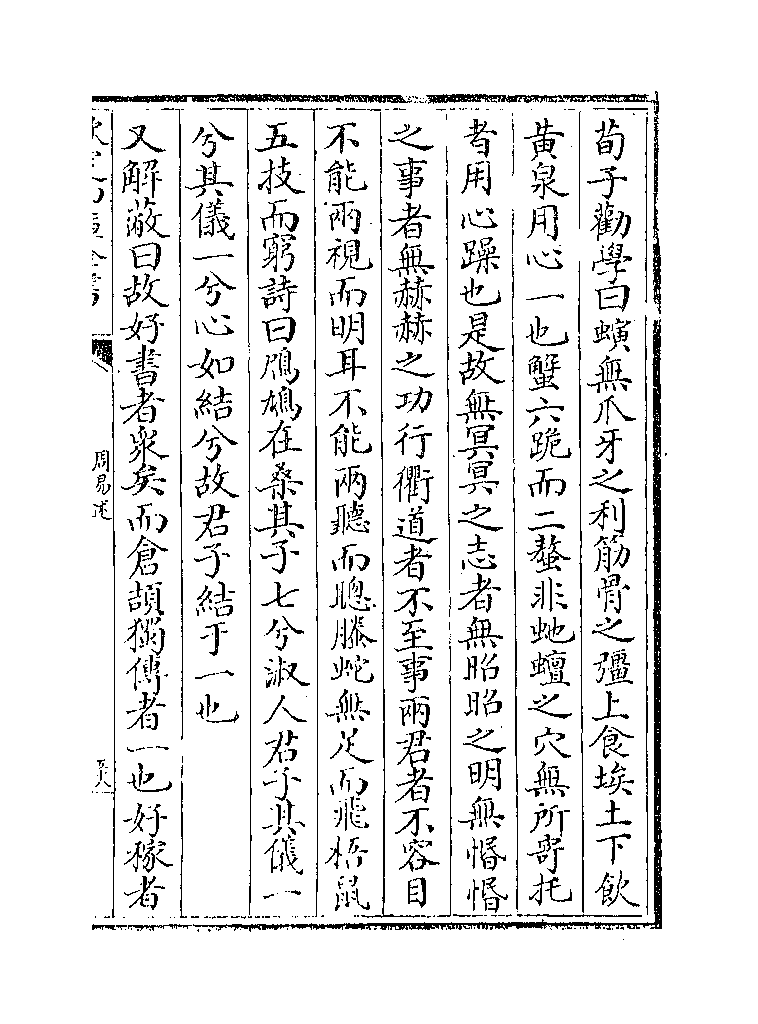 荀子勸學曰螾無爪牙之利筋骨之彊上食埃土下飲
黄泉用心一也蟹六跪而二螯非虵蟺之穴無所寄托
者用心躁也是故無冥冥之志者無昭昭之明無惛惛
之事者無赫赫之功行衢道者不至事兩君者不容目
不能兩視而明耳不能兩聽而聰螣蛇無足而飛梧鼠
五技而窮詩曰鳲鳩在桑其子七兮淑人君子其儀一
兮其儀一兮心如結兮故君子結于一也
又解蔽曰故好書者衆矣而倉頡獨傳者一也好稼者
周易述